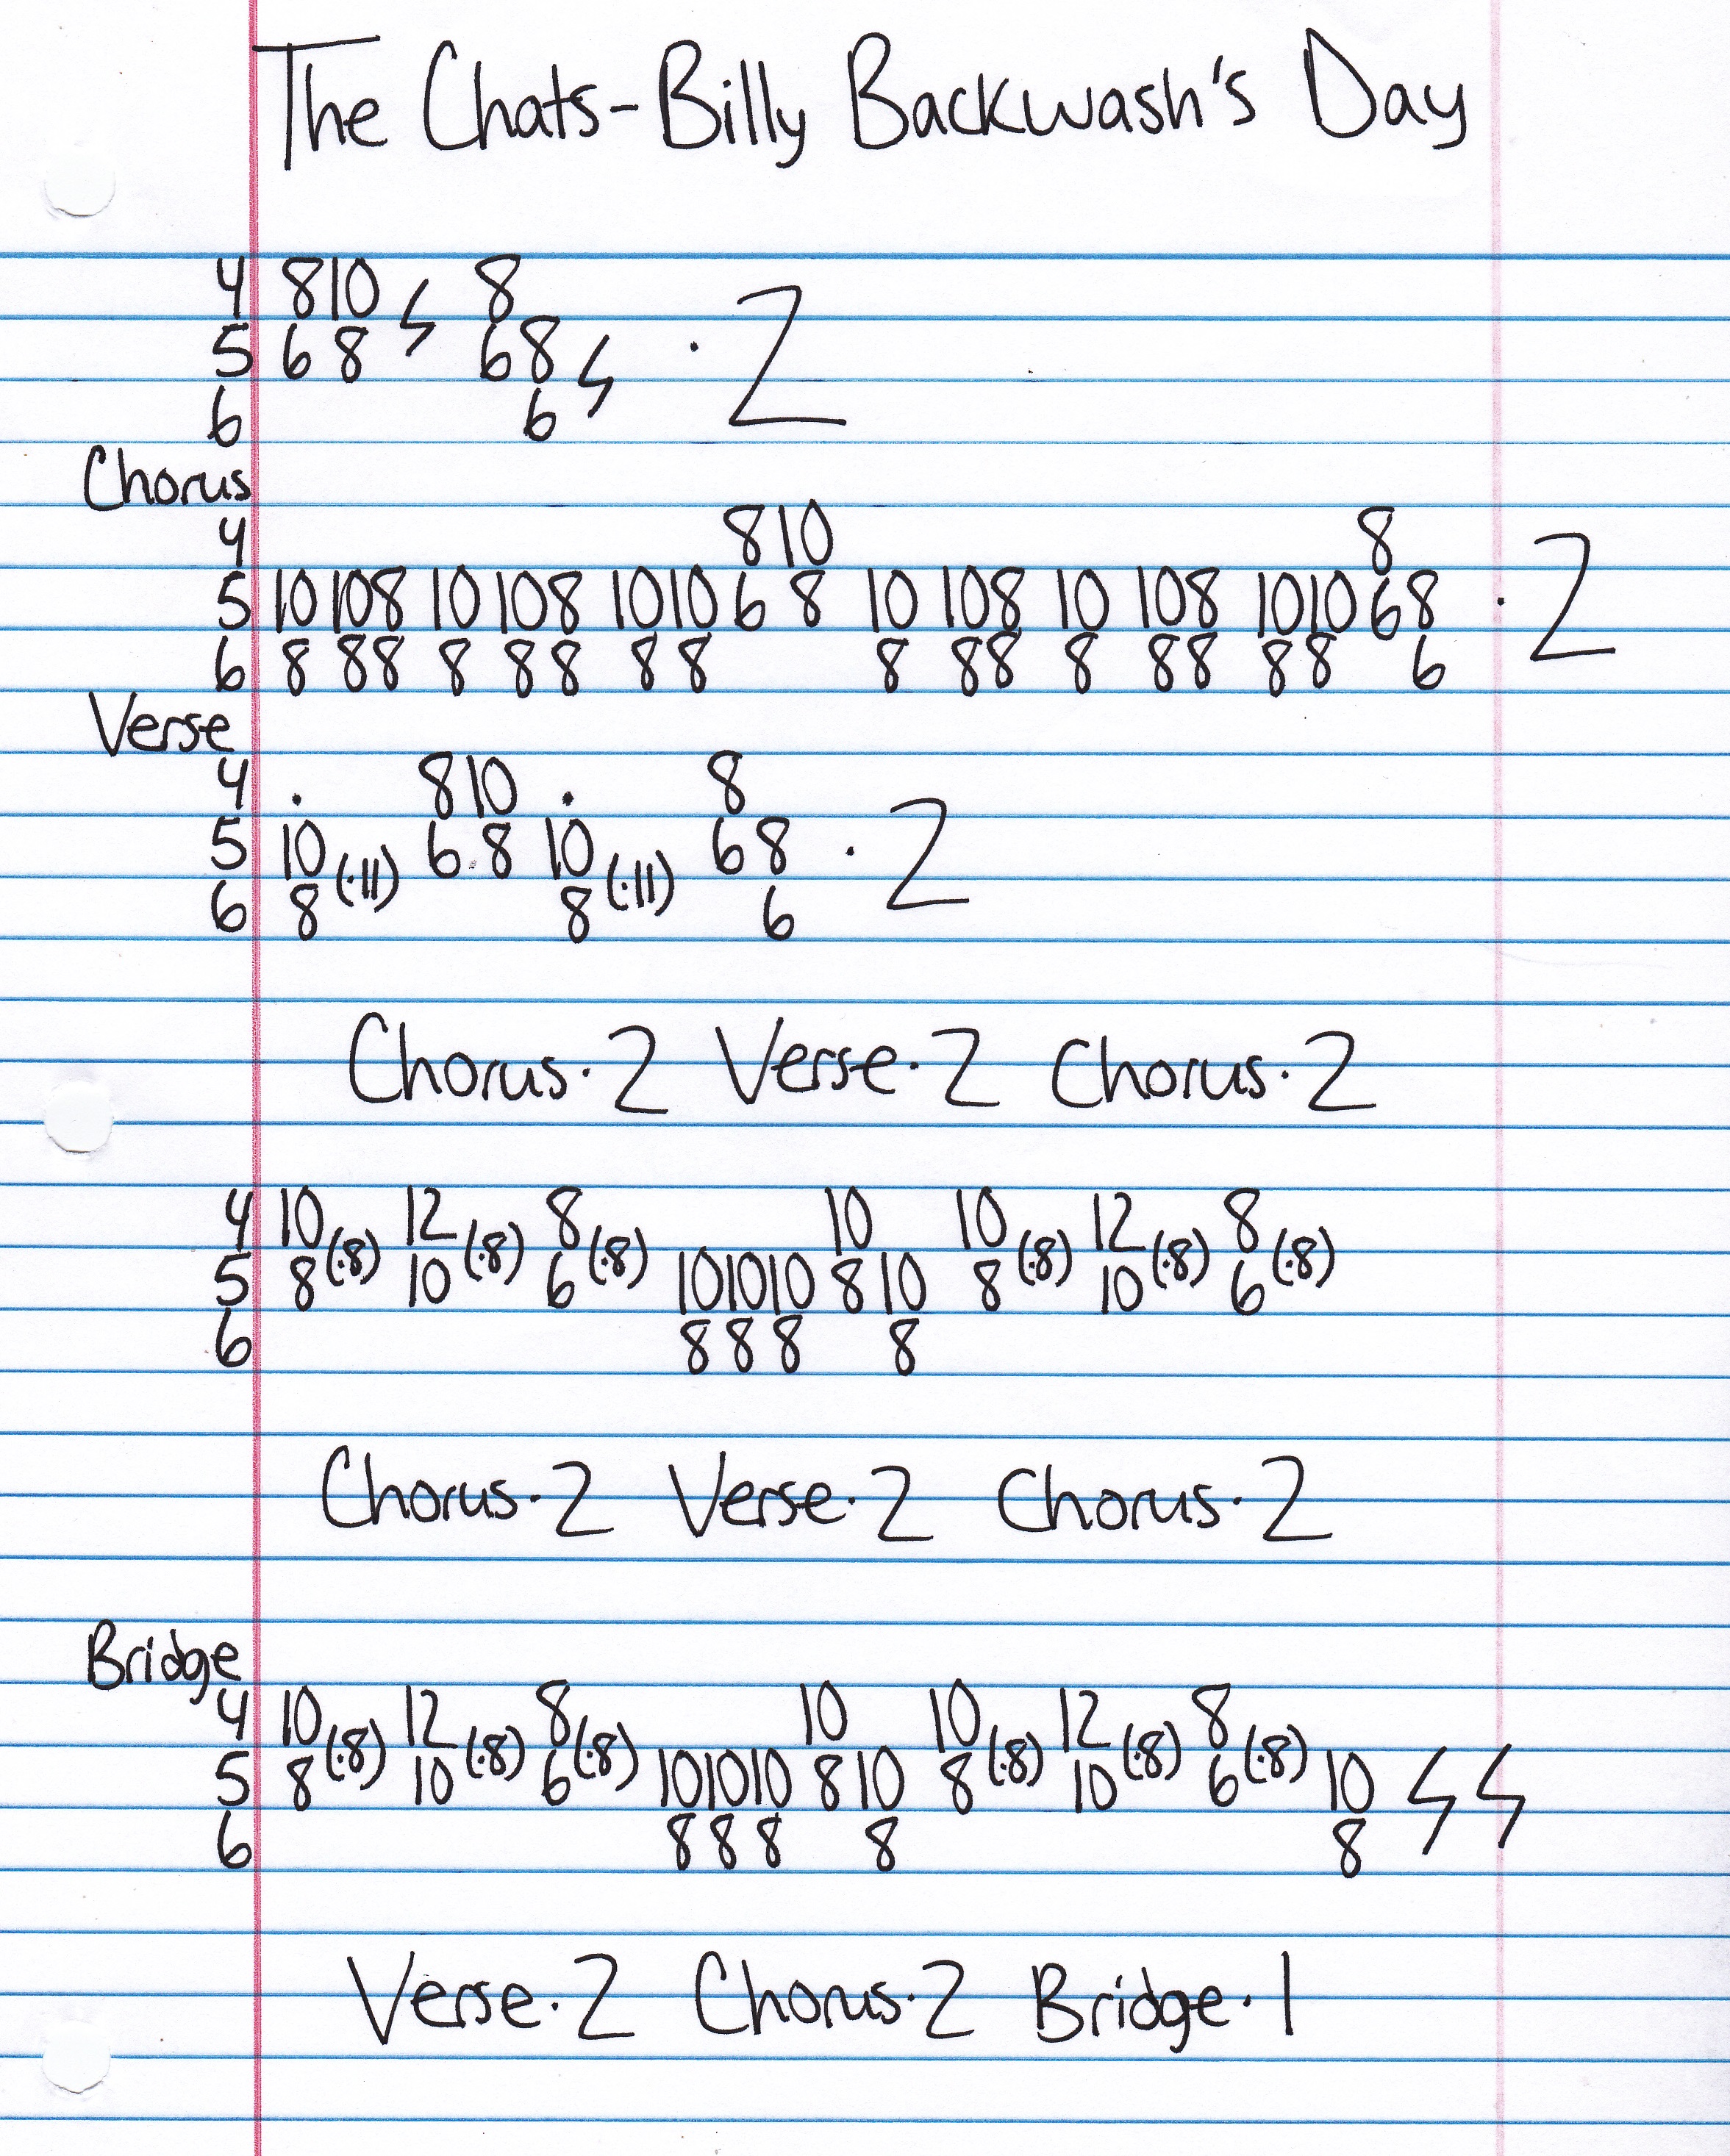 The Chats-Billy Backwash's Day
4 8 10 ϟ 8
5 6 8 6 8 ϟ · 2
6 6
Chorus
4 8 10 8
5 10 10 8 10 10 8 10 10 6 8 10 10 8 10 10 8 10 10 6 8 · 2
6 8 8 8 8 8 8 8 8 8 8 8 8 8 8 8 8 6
Verse
4 . 8 10 . 8
5 10 (·11) 6 8 10 (·11) 6 8 · 2
6 8 8 6
Chorus·2 Verse·2 Chorus·2
4 10 (·8) 12 (·8) 8 (·8) 10 10 (·8) 12 (·8) 8 (·8)
5 8 10 6 10 10 10 8 10 8 10 6
6 8 8 8 8
Chorus·2 Verse·2 Chorus·2
Bridge
4 10 (·8) 12 (·8) 8 (·8) 10 10 (·8) 12 (·8) 8 (·8)
5 8 10 6 10 10 10 8 10 8 10 6 10 ϟ ϟ
6 8 8 8 8 8
Verse·2 Chorus·2 Bridge·1